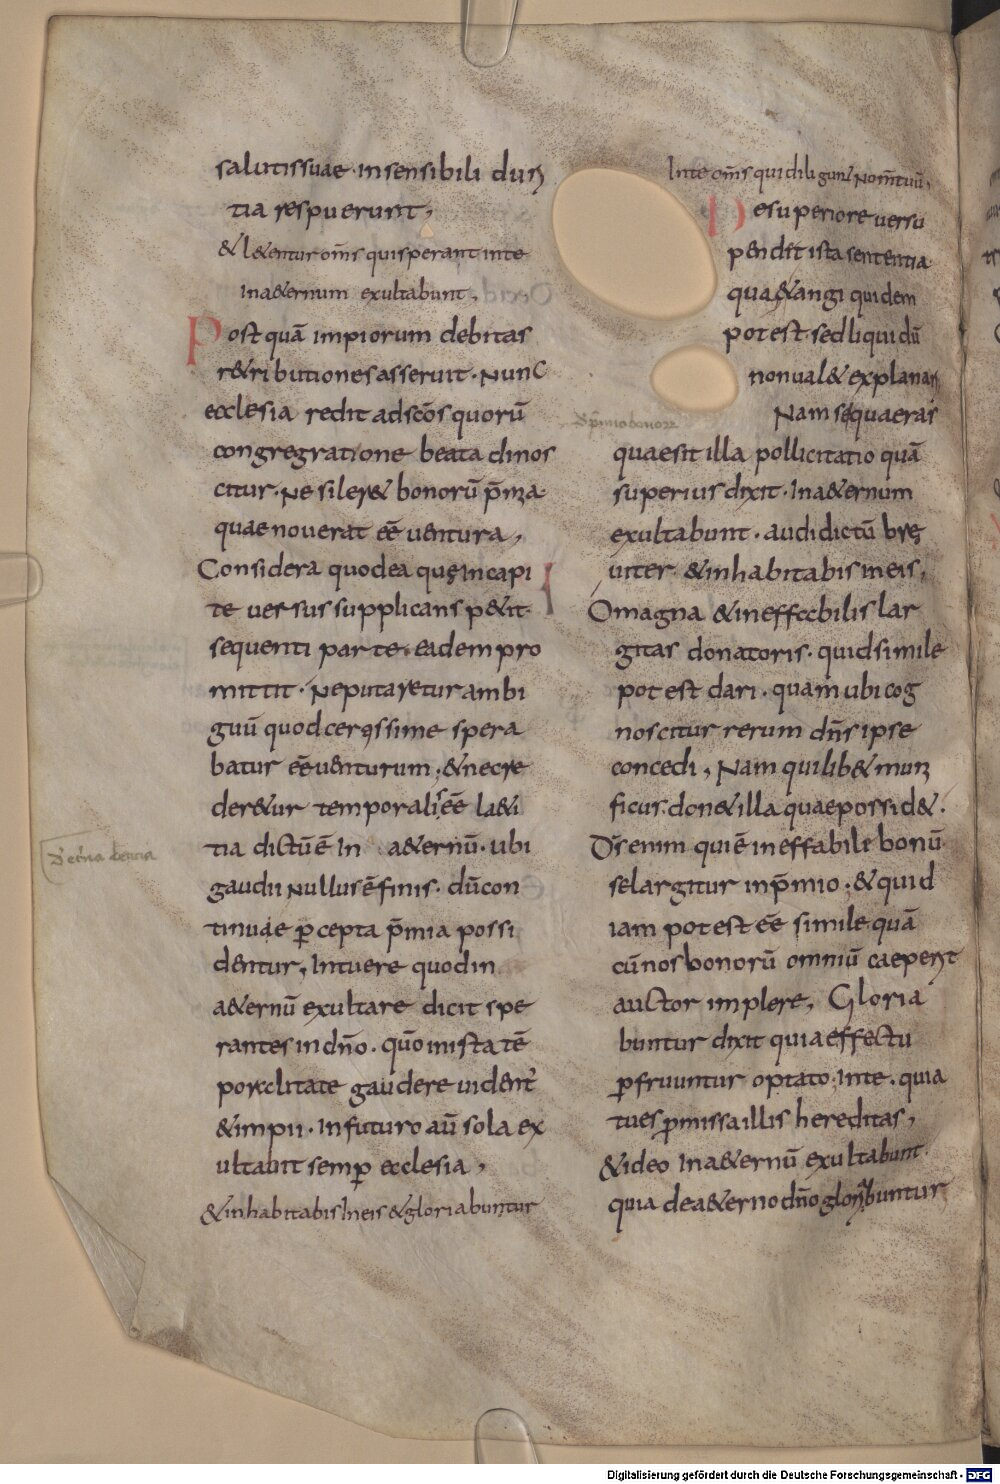 salutissuae·insensibili duri
tia respuerunt,
&l&entur om̅s quisperant inte
Ina&ernum exultabunt,
Post quā impiorum debitas
r&ributiones asseruit·Nunc
ecclesia redit adsc̅os quorū
congregratione beata dinos
citur·Ne siler& bonorū p̅mia
quae nouerat ee̅ uentura,
Considera quodea quę incapi
te uersus supplicans p&iit
sequenti parte·eadem pro
mittit·Neputaretur ambi
guū quod certissime spera
batur ee̅uenturum;&necre
der&ur temporalis ee̅ la&i
tia dictū e̅ In a&ernū·ubi
gaudii Nullus e̅ finis·dū con
tinuae ꝑcepta p̅mia possi
dentur, Intuere quod in
a&ernū exultare dicit spe
rantes in dn̅o·quō inista te̅
poralitate gaudere uident̅
&impii·Infuturo aū sola ex
ultabit semꝑ ecclesia,
&inhabitabis Ineis &gloriabuntur
Inte om̅s qui diligunt Nom̅ tuū,
Desuperiore uersu
pendet ista sententia
qua&angi quidem
potest·sed liquidū
nonual& explanari
Nam sequaeras
dp̅miobonore
quaesit illa pollicitatio quā
superius dixit·Ina&ernum
exultabunt·audi dictū bre
uiter·&inhabitabis ineis,
O magna &ineffabilis lar
gitas donatoris·quid simile
potest dari·quam ubi cog
noscitur rerum dn̅s ipse
concedi, Nam quilib& muni
ficus·don& illa quae possid&·
D̅s enim qui e̅ ineffabile bonū
se largitur inp̅mio·&quid
iam potest ee̅ simile quā
cū nos bonorū omniū caeperit
auctor implere, Gloria
buntur dixit quia effectu
ꝑfruuntur optato·Inte·quia
tu es ꝓmissa illis hereditas,
&ideo Ina&ernū exultabunt·
quia dea&erno dn̅o gloriabuntur
Digitalisierung gefördert durch die Deutsche Forschungsgemeinschaft - DFG